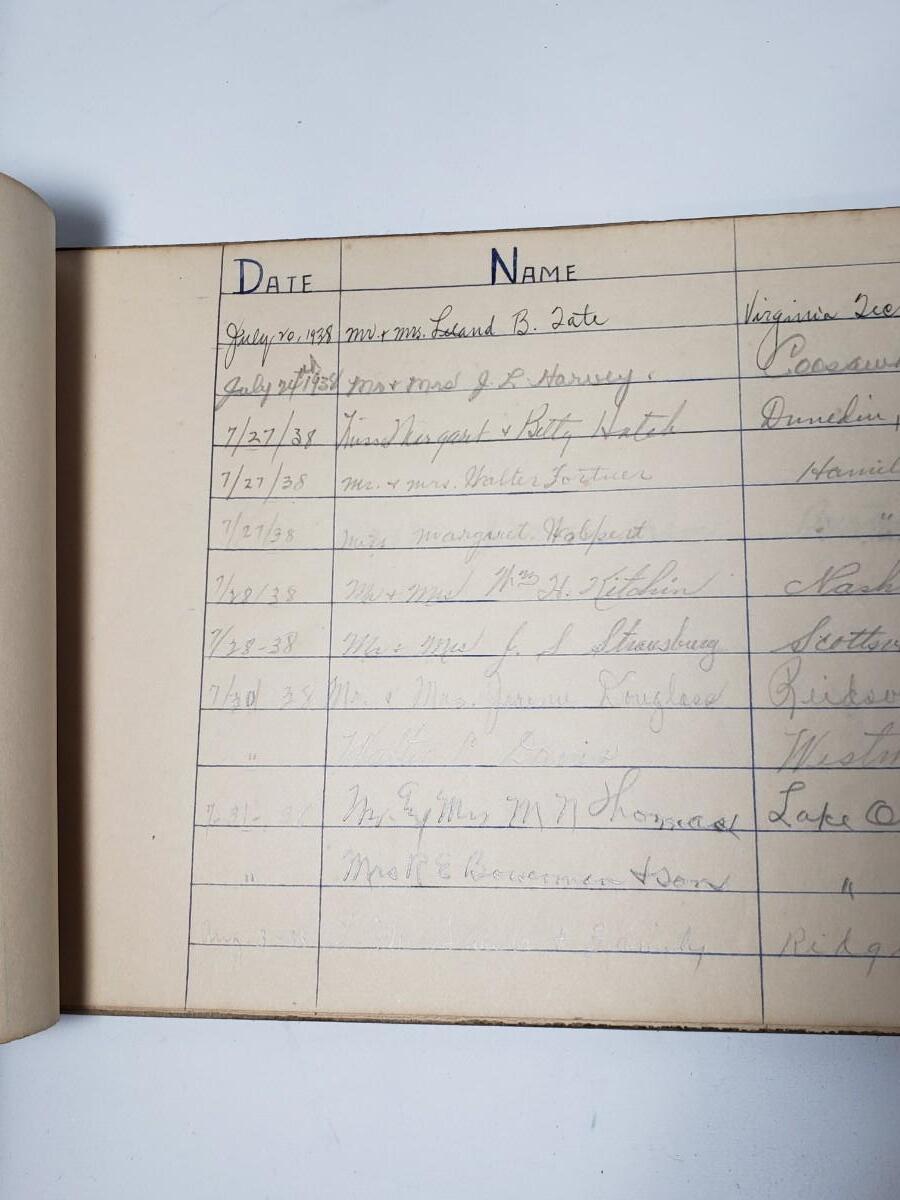 DATE NAME
July 20, 1938 Mr. + Mrs. Leland B. Tate Virginia Tec
July 24th 1938 Mr + Mrs J. L. Harvey.
7/27/38 Miss Margart + Betty Hatch Dunedin,
7/27/38 Mr. + Mrs. Walter Fortner Hamil
7/27/38 Margaret "
7/28/38 Mr + Mrs Wm H. Kitchin Nash
7/28-38 Mr. & Mrs J. S Strausburg Scottsv
7/30 38 Mr. & Mrs. Jerome Douglass Reidsv
" Davis Westm
7-31- 38 Mr. & Mrs M N Thomas Lake O
" Mrs R E Bowerman + son "
Aug. + Family Ridg